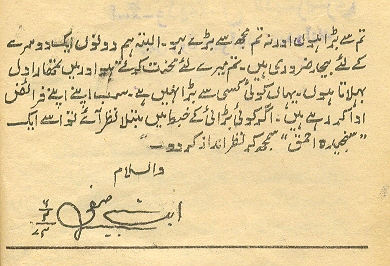 تم سے بڑا ہوں اور نہ تم مجھ سے بڑے ہو۔ البتہ ہم دونوں ایک دوسرے
کے لئے بیحد ضروری ہیں۔ تم میرے لئے محنت کرتے ہو اور میں تمھارا دل
بہلاتا ہوں۔ یہاں کوئی کسی سے بڑا نہیں ہے۔ سب اپنے اپنے فرائض
ادا کر رہے ہیں۔ اگر کوئی بڑائی کے خبط میں مبتلا نظر آئے تو اسے ایک
"سنجیدہ احمق" سمجھ کر نظر انداز کر دو۔
والسلام
ابن صفی